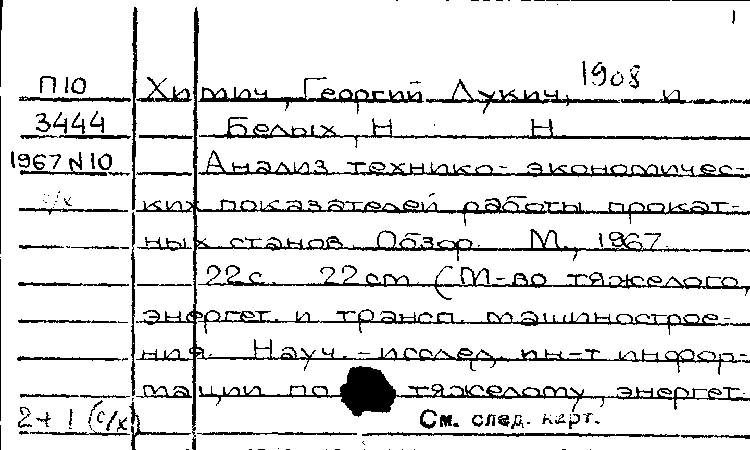 1
П10 Химич, Георгий Лукич, 1908 и
3444 Белых, Н Н.
1967 N10 Анализ технико-экономичес-
с/х ких показателей работы прокат-
ных станов. Обзор. М., 1967.
22с. 22 см (М-во тяжелого,
энергет. и трансп. машинострое-
ния. Науч.-исслед. ин-т инфор-
мации по тяжелому, энергет.
2+1 (с/х) См. след. карт.